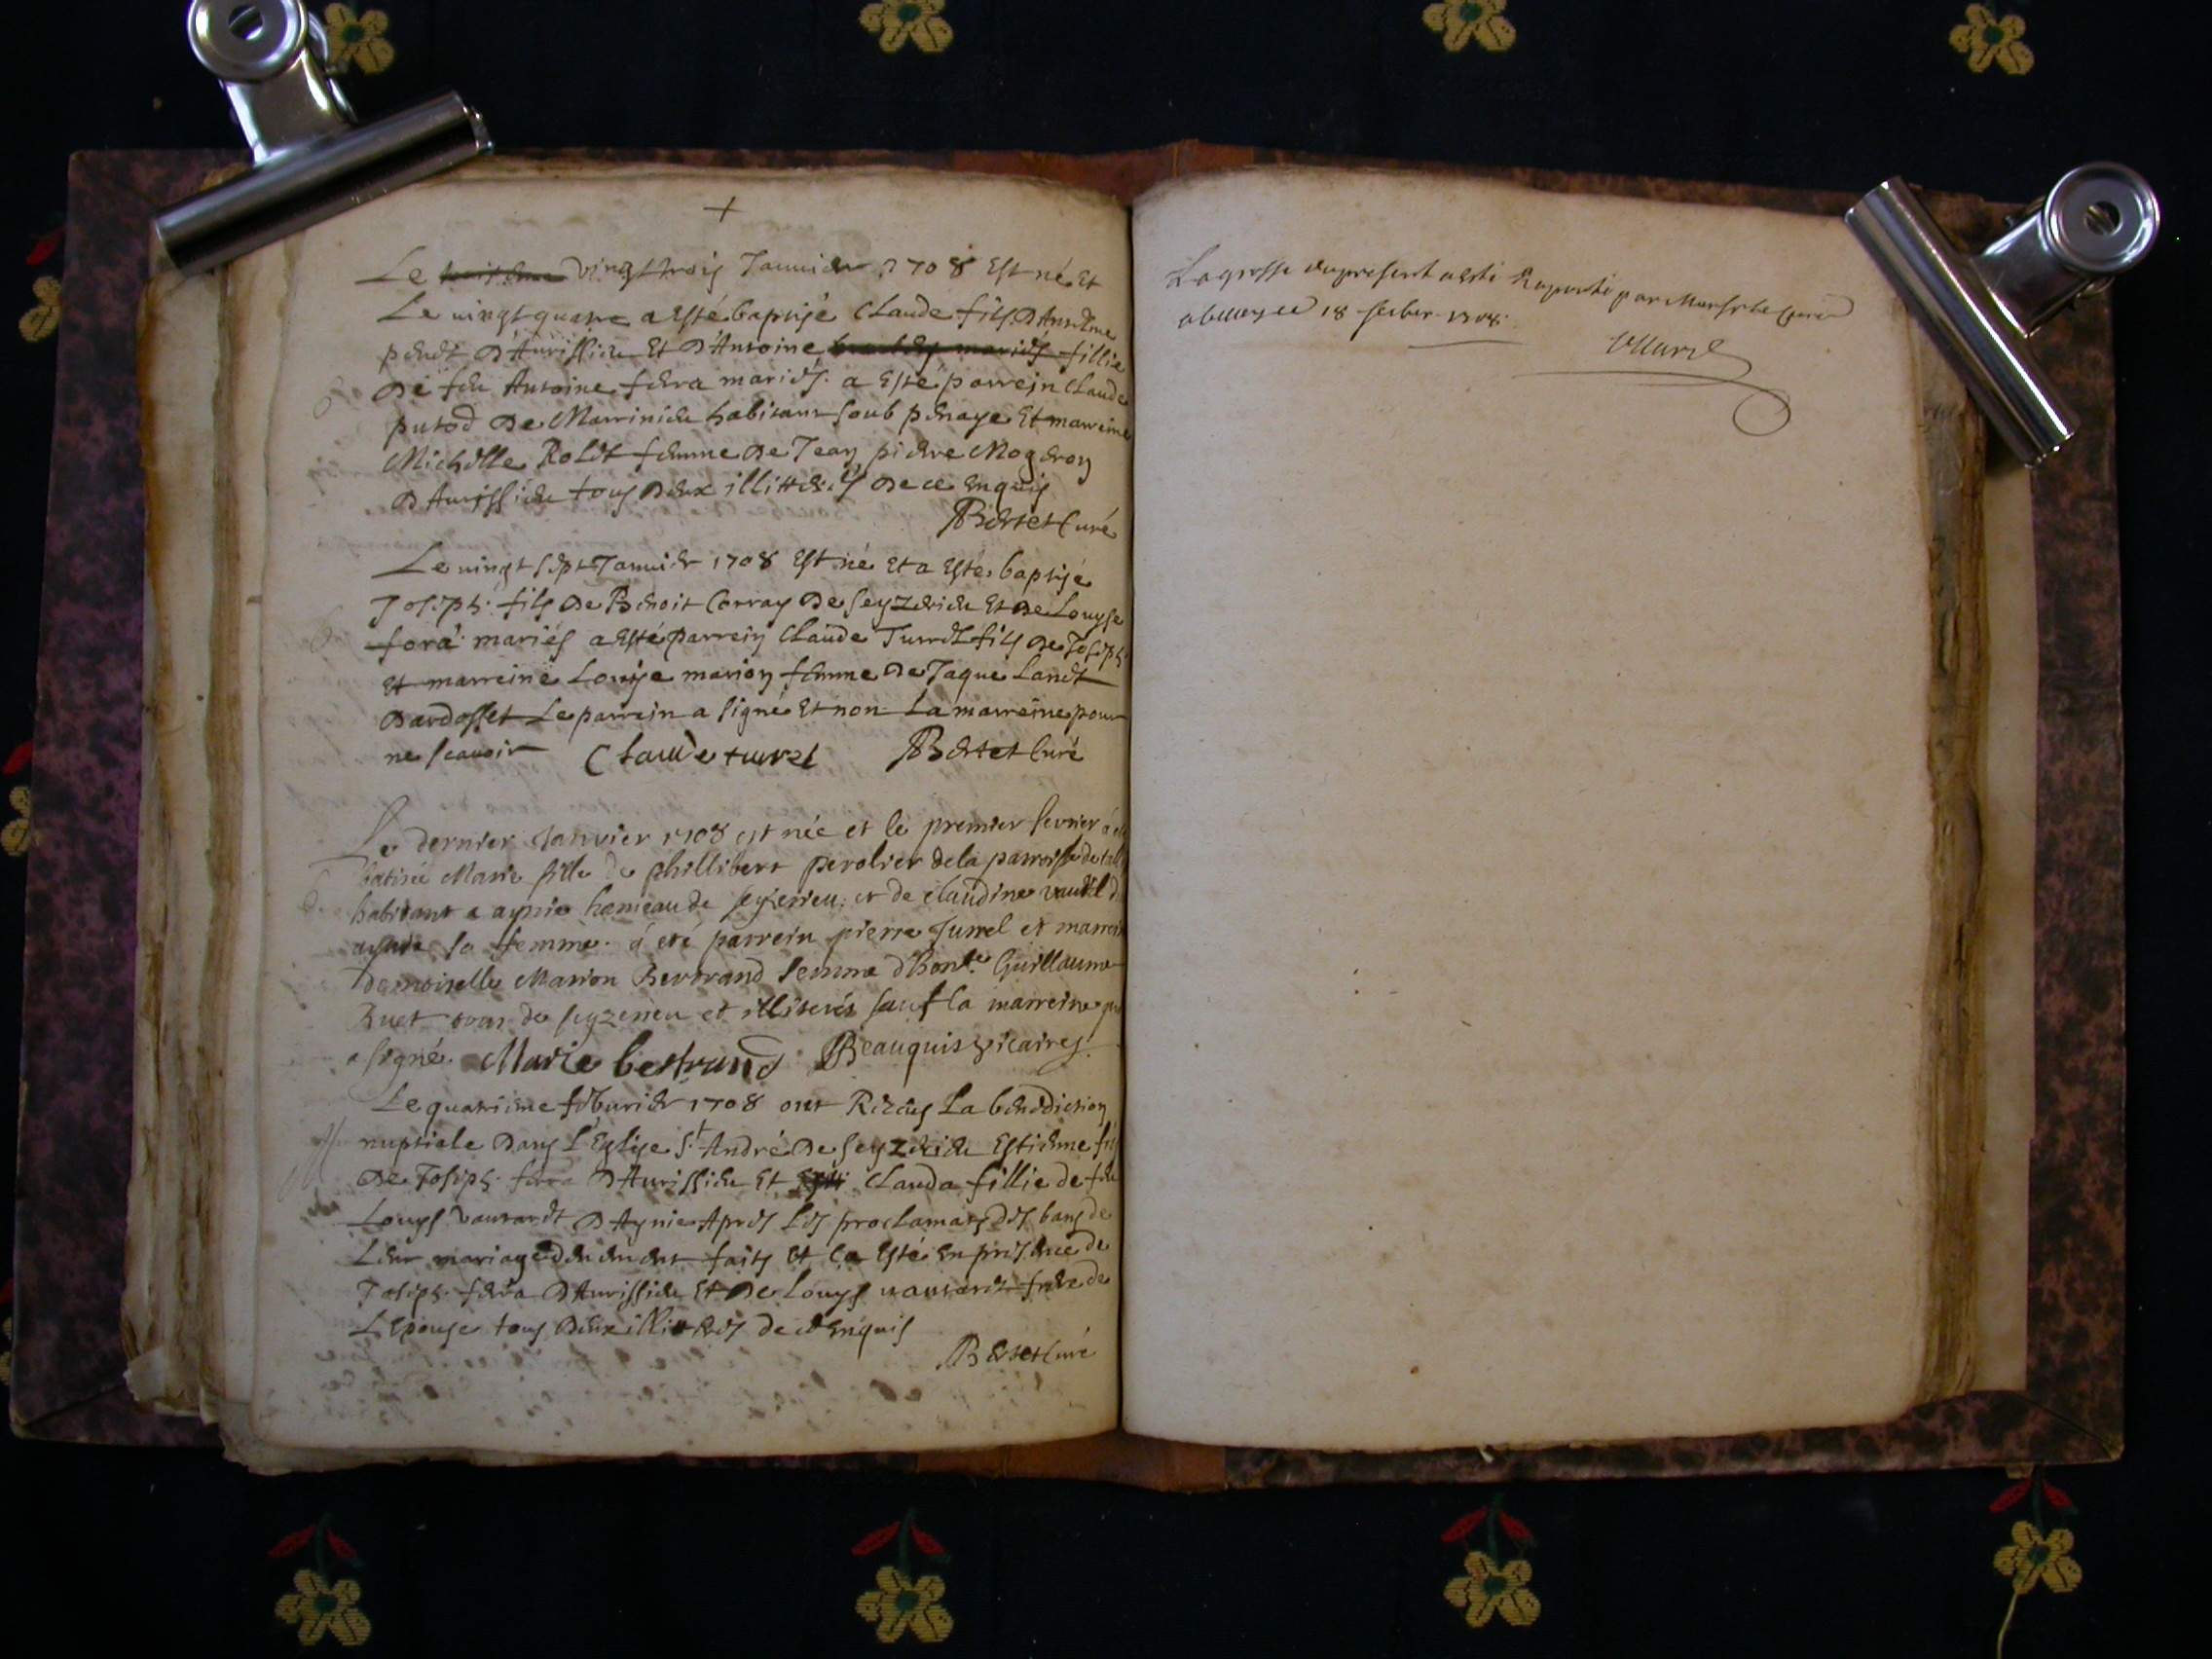 +
Le vingt trois Januier 1708 Est né Et
Le uingt quatre a Esté baptisé Claude fils D'Anselme
D'Aurissieu Et D'Antoine fillie
De feu Antoine fera mariés. a Esté parrein Claude
putod De Marinieu habitant soub penaye Et marreine
Michelle Rolet femme De Jean pierre Mogeron
D'Aurissieu tous Deux illitterés De ce Enquis
Bertet Curé
Le uingt sept Januier 1708 Est né Et a Esté baptisé
Joseph fils De Benoit Corray De Seyzerieu Et De Louyse
fora mariés a Esté parrein Claude Turrel fils De Joseph
Et marreine Louise marion femme De Jaque Landet
Dardosset Le parrein a signé Et non La marreine pour
ne scauoir Claude turrel Bertet Curé
Le dernier Janvier 1708 est née et le premier fevrier à
batisée Marie fille de phillibert perolier de la parroisse de
habitant a aynie hameau de seyzerieu, et de claudine
aynie sa femme. à eté parrein pierre Jurrel et marrei
demoiselle Marion Bertrand femme d'hon.le Guillaume
Ruet tous de seyzerieu et illiterés sauf la marreine
a signé. Marie bertrand Beauquis vicaire
Le quatrieme feburier 1708 ont Receus La benediction
nuptiale Dans L'Eglise S.t André De Seyzerieu Estienne
De Joseph fera D'Aurissieu Et Clauda fillie de feu
Louys vautaret D'Aynie Apres Les proclamaõs Des bans de
Leur mariage deuement faits Et Ce Esté En presence de
Joseph fera D'Aurissieu Et De Louys uautaret frere de
L'Epouse tous Deux illitterés de ce Enquis
Bertet Curé
La grosse du present a esté Raportée par Monsr le Curé
a belley ce 18 feuber 1708